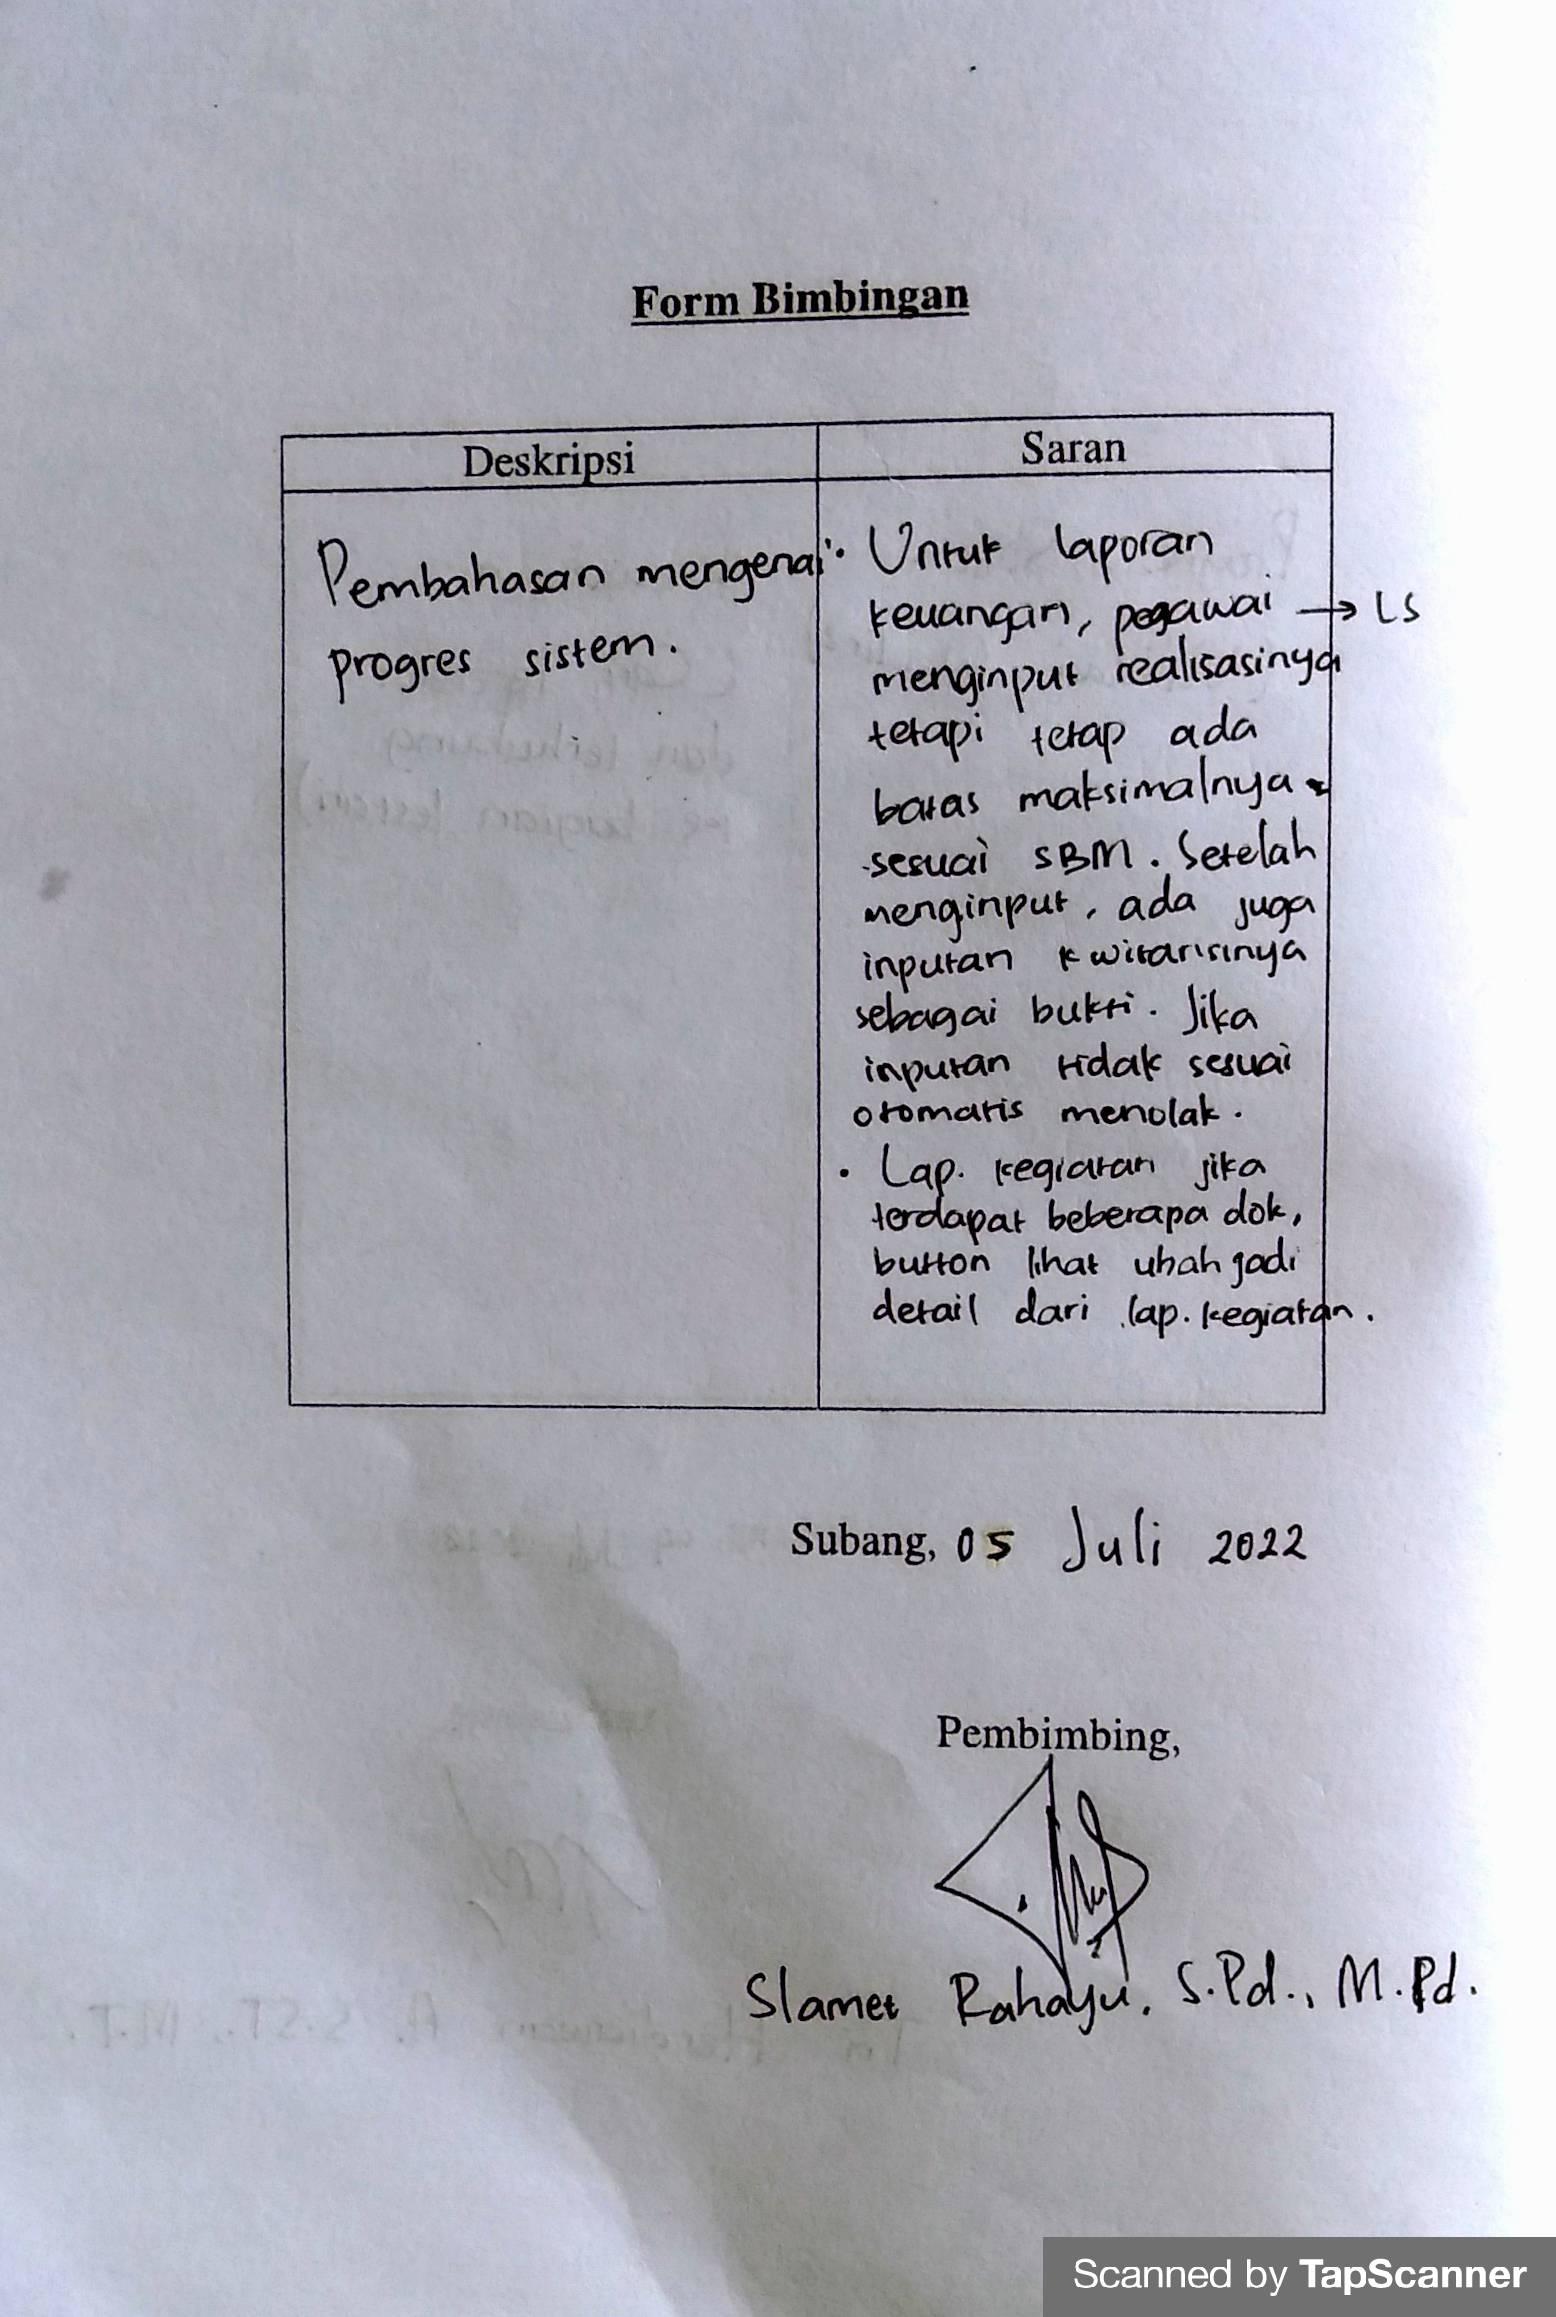 Form Bimbingan
Deskripsi
Saran
Pembahasan mengenai
progres sistem.
• Untuk laporan
keuangan, pegawai → LS
menginput realisasinya
tetapi tetap ada
batas maksimalnya
sesuai SBM. Setelah
menginput, ada juga
inputan kwitansinya
sebagai bukti. Jika
inputan tidak sesuai
otomatis menolak.
• Lap. kegiatan jika
terdapat beberapa dok,
button lihat ubah jadi
detail dari lap. kegiatan.
Subang, 05 Juli 2022
Pembimbing,
Slamet Rahayu, S.Pd., M.Pd.
Scanned by TapScanner